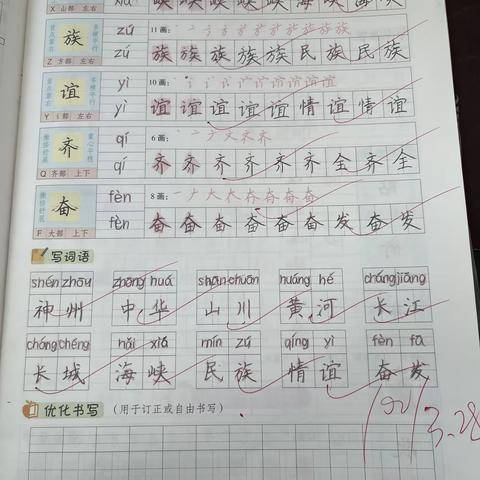 X 山部 左右
zú 11画:
zú 族 族 族 族 族 民 族 民 族
族
Z 方部 左右
yì 10画:
yì 谊 谊 谊 谊 谊 情 谊 情 谊
谊
Y 讠部 左右
qí 6画:
qí 齐 齐 齐 齐 齐 齐 全 齐 全
齐
Q 齐部 上下
fèn 8画:
fèn 奋 奋 奋 奋 奋 奋 发 奋 发
奋
F 大部 上下
写词语
shén zhōu zhōng huá shān chuān huáng hé cháng jiāng
神 州 中 华 山 川 黄 河 长 江
cháng chéng hǎi xiá mín zú qíng yì fèn fā
长 城 海 峡 民 族 情 谊 奋 发
优化书写 (用于订正或自由书写)
3.28